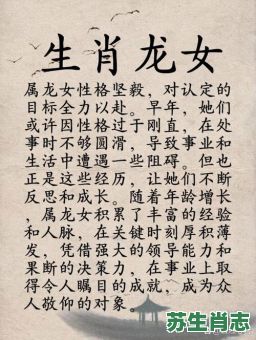 生肖龙女
属龙女性格坚毅，对认定的
目标全力以赴。早年，她们
或许因性格过于刚直，在处
事时不够圆滑，导致事业和
生活中遭遇一些阻碍。但也
正是这些经历，让她们不断
反思和成长。随着年龄增长
，属龙女积累了丰富的经验
和人脉，在关键时刻厚积薄
发，凭借强大的领导能力和
果断的决策力，在事业上取
得令人瞩目的成就，成为众
人敬仰的对象。
苏生肖志